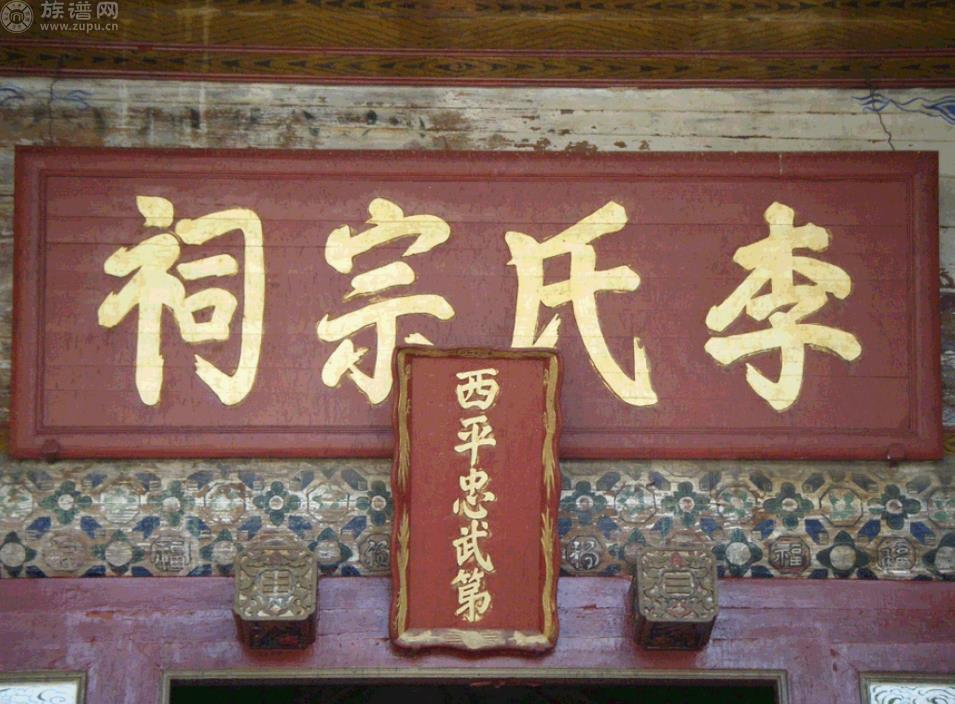 族谱网
www.zupu.cn
李氏宗祠
西平忠武第
福
福